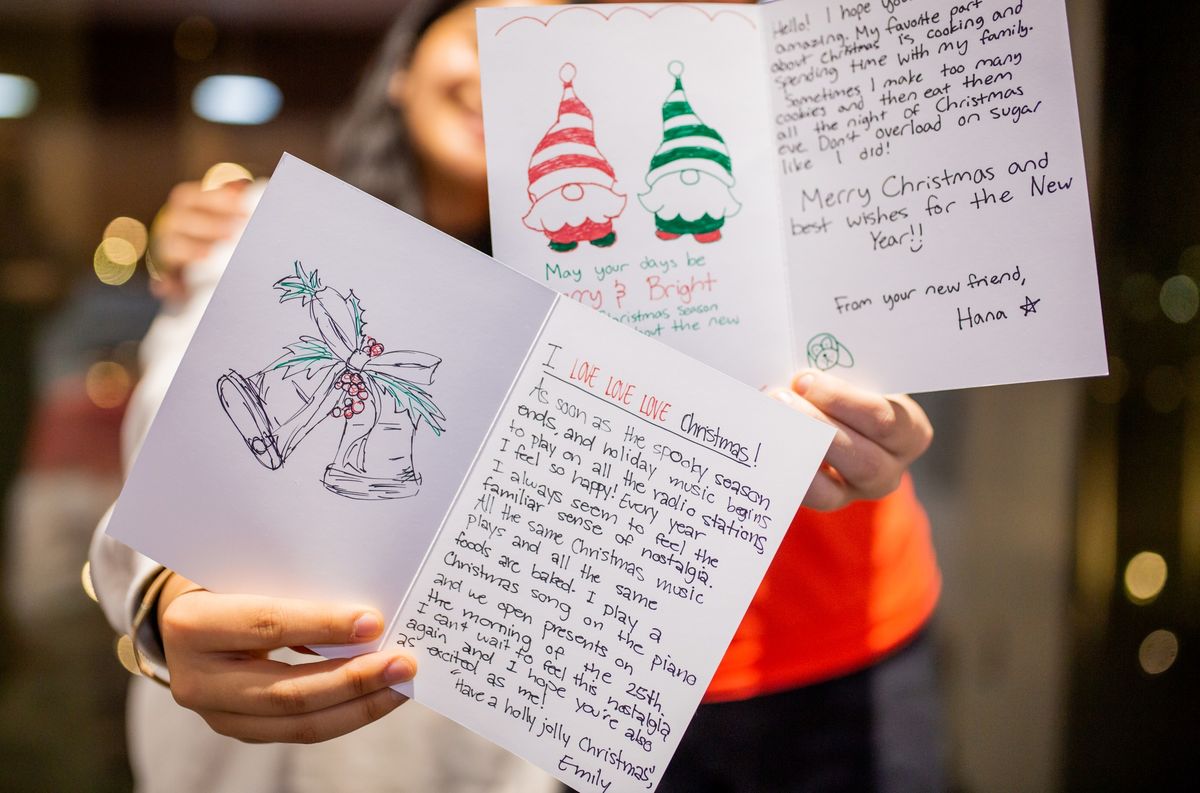 Hello! I hope
amazing. My favorite part
about Christmas is cooking and
spending time with my family.
Sometimes I make too many
cookies and then eat them
all the night of Christmas
eve. Don't overload on sugar
like I did!
Merry Christmas and
best wishes for the New
Year!!
From your new friend,
Hana
May your days be
& Bright
Christmas season
the new
I LOVE LOVE LOVE Christmas!
As soon as the spooky season
ends, and holiday music begins
to play on all the radio stations
I feel so happy! Every year
I always seem to feel the
familiar sense of nostalgia.
All the same Christmas music
plays and all the same
foods are baked. I play a
Christmas song on the piano
and we open presents on
the morning of the 25th.
I can't wait to feel this nostalgia
again and I hope you're also
as excited as me!
"Have a holly jolly Christmas",
Emily